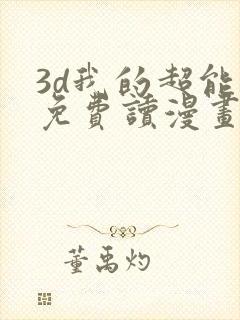 3d我的超能
免費讀漫畫
董禹灼